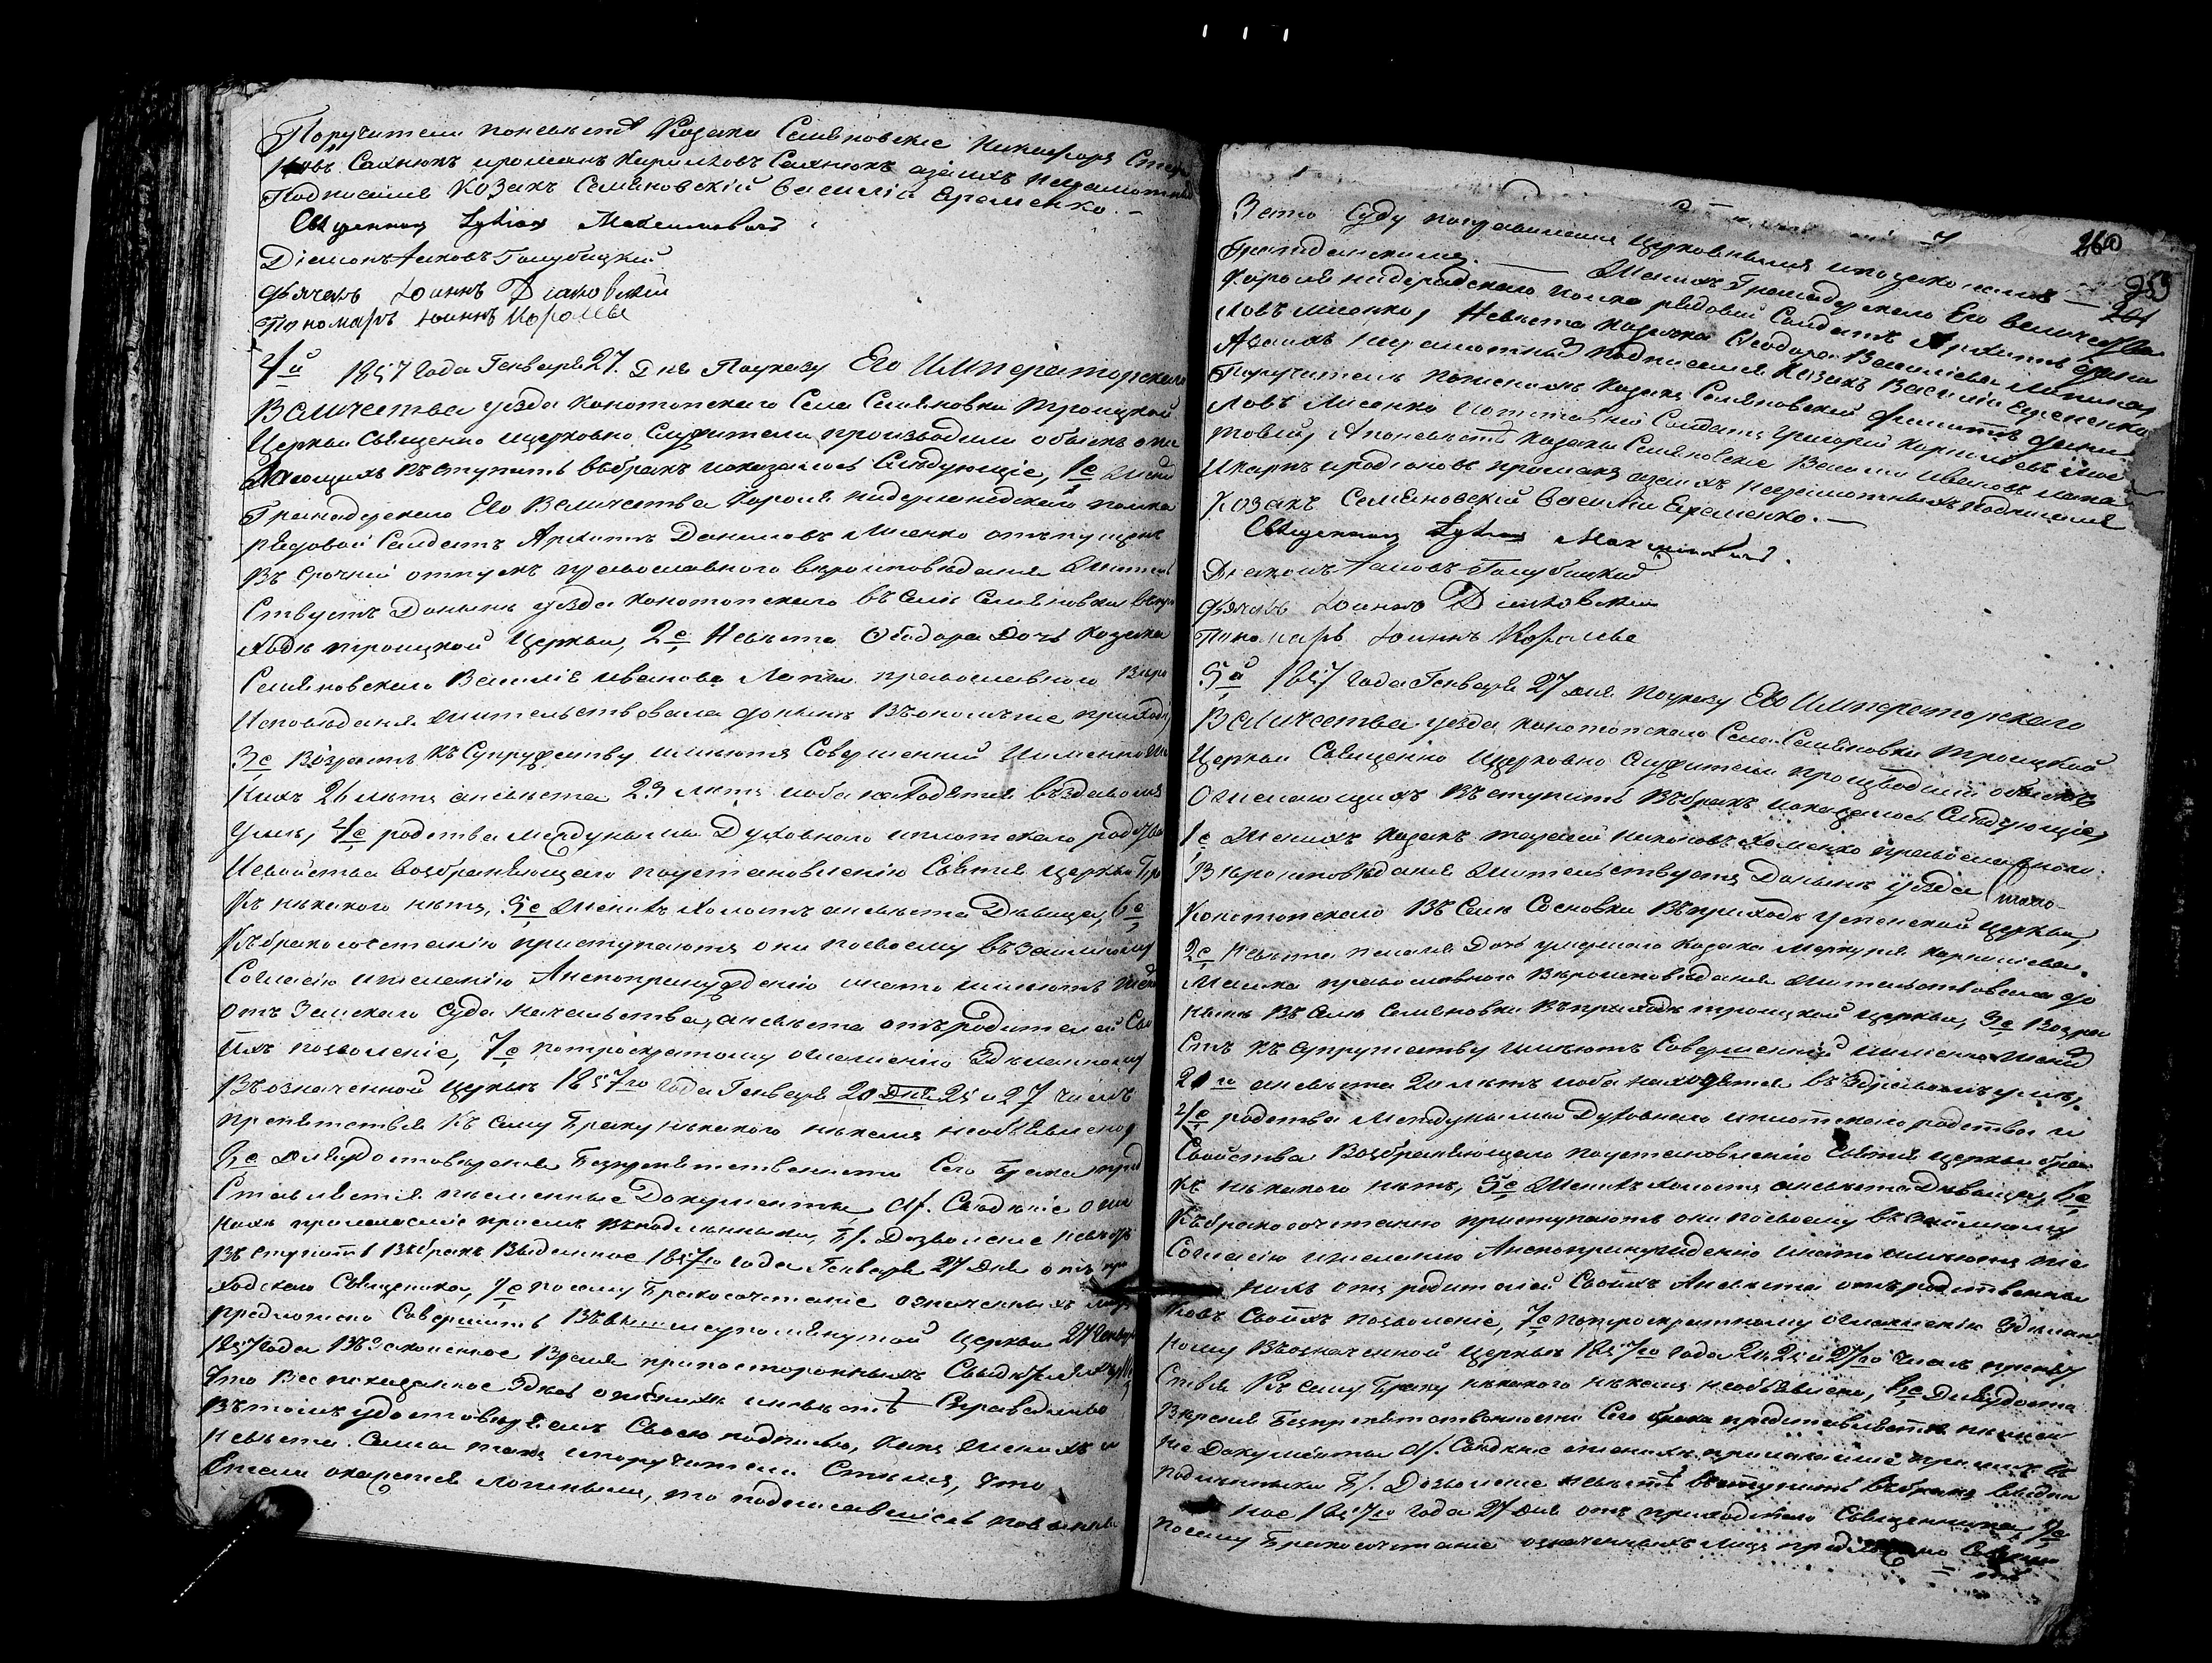 Поручители поневесте Козаки Семяновские Никифоръ Стефа
новъ Сахнюкъ ироманъ Кириловъ Сахнюкъ азаихъ неграмотныхъ
Подписался Козакъ Семяновскій Василій Еременко. —
Священникъ Максимовичъ
Діаконъ Іаковъ Голубицкій
дьячекъ Іоаннъ Діаковскій
Пономарь Іоаннъ Королевъ
4й 1857 года Генваря 27. Дня Поуказу Его Императорскаго
Величества уезда Конотопскаго Села Семяновки Троицкой
Церкви Священно ицерковно Служители производили обыскъ оже
лающихъ вступить вбракъ иоказалось Следующіе, 1е Жени
Гренадерскаго Его Величества Короля нидерланскаго полка
рядовой Солдатъ Архипъ Даниловъ Лисенко отпущенъ
въ срочній отпускъ православного вероисповеданія Житель
Ствуетъ Донынъ уезда Конотопскаго въ Селе Семяновки впри
ходе троицкой Церкви, 2е Невеста Феодора Дочь козака
Семяновскаго Василія иванова Лапы православного Веро
Исповеданія жительствовала донынъ Втомже приходе,
3е Возрастъ къ Супружеству имеютъ Совершенній Именно же
нихъ 26 летъ аневеста 23 летъ иоба находятся вздравомъ
уме, 4е родства междуними Духовного иплотскаго родства
Исвойства возбраняющаго поустановленію Святія церкви Бра
къ некакого нетъ, 5е Женихъ холостъ аневеста Девица, 6е
Къбракосочетанію приступаютъ они посвоему взаимному
Согласію ижеланію Анепопринужденію инато имеютъ жени
отъ Земскаго Суда начальства, аневеста отъ родителей Сво
ихъ позволеніе, 7е потроекратному оглашенію Зделанному
Въозначенной церкви 1857го года Генваря 20 Дня 25 и 27 числъ
препятствія къ сему Браку некакого некемъ необъявлено,
8е Дляудостоверенія Безпрепятственности Сего Брака пред
Ставляются писменные Документы а/. Сведеніе оже
нихе прилагаеміе присемъ вподлинники, Б/. Дозволеніе невесте
вступить Вбракъ Выданное 1857го года Генваря 27 Дня отъ при
ходскаго Священника, 9е посему Бракосочетаніе означенныхъ лицъ
предположено Совершить Ввышеупомянутой Церкви 27 Генваря
1857 года въ Законенное Время припостороннихъ Свидетеляхъ, 10е
Что Все показанное здесь ожениху иневесте Справедливо
Въ томъ удостоверяемъ Своею подписью, какъ Женихъ и
невеста Сами такъ ипоручители Стемъ, что
Ежели окажется ложнымъ, то подписавшіесь повинны
260
259
201
Зато Суду поправиламъ Церковнымъ ипозаконамъ —
Гражданскимъ. — Женихъ Гренадерскаго Его Величества
Короля нидерландскаго полка рядовой Солдатъ Архипъ Дани
ловъ лисенко, Невеста козачка Феодора Васильева Лапина
Азаихъ неграмотныхъ подписался Козакъ Василій Еременко
Поручители поженихе Козакъ Семяновскій Филипъ Дани
ловъ Лисенко иотставній Солдатъ Григорій
Апоневесте Козаки Семяновскіе Василій Ивановъ лапа
азаихъ неграмотныхъ подписался
Козакъ Семяновскій Василій Еременко. —
Священникъ Максимовичъ.
Діаконъ Іаковъ Голубицкій
дьячекъ Іоаннъ Діаковскій
Пономарь Іоаннъ Королевъ
5й 1857 года Генваря 27 дня Поуказу Его Императорскаго
Величества уезда Конотопскаго Села Семяновки Троицкой
Церкви Священно ицерковно Служители производили обыскъ
Ожелающихъ вступить вбракъ иоказалось Следующіе,
1е Женихъ козакъ Хоменко православного
Вероисповеданія Жительствуетъ Донынъ уезда Коно-
Конотопскаго въ Селе Сосновки Въприходе Успенской церкви,
2е Невеста Пелагія Дочь умершаго козака Меркурія
православного Вероисповеданія Жительствовала до
нынъ въ Селе Семяновки Въприходе троицкой церкви, 3е Возра
Стъ къ супружеству имеютъ Совершенній именно Жених
21го аневеста 20 летъ иоба находятся вздравомъ уме,
4е родства междуними Духовного иплотскаго родства и
Свойства Возбраняющаго поустановленію Святія церкви бра
къ некакого нетъ, 5е Женихъ холостъ аневеста Девица, 6е
Къбракосочетанію приступаютъ они посвоему взаимному
Согласію ижеланію Анепопринужденію инато имеютъ же
нихъ отъ родителей Своихъ Аневеста отъ родственни
ковъ Своихъ позволеніе, 7е потроекратному оглашенію зделан
ному Въозначенной церкви 1857го года 20, 25 и 27го числъ препят
ствія Къ сему Браку некакого некемъ необъявлено, 8е Дляудосто
веренія Безпрепятственности Сего брака представляются писмен
ные Документы а/. Сведеніе оженихе прилагаеміе присемъ въ
подлинники Б/. Дозволеніе невесте вступить вбракъ выдан
ное 1857го года 27 дня отъ приходскаго Священника, 9е
посему Бракосочетаніе означенныхъ лицъ предположено Соверши
ть